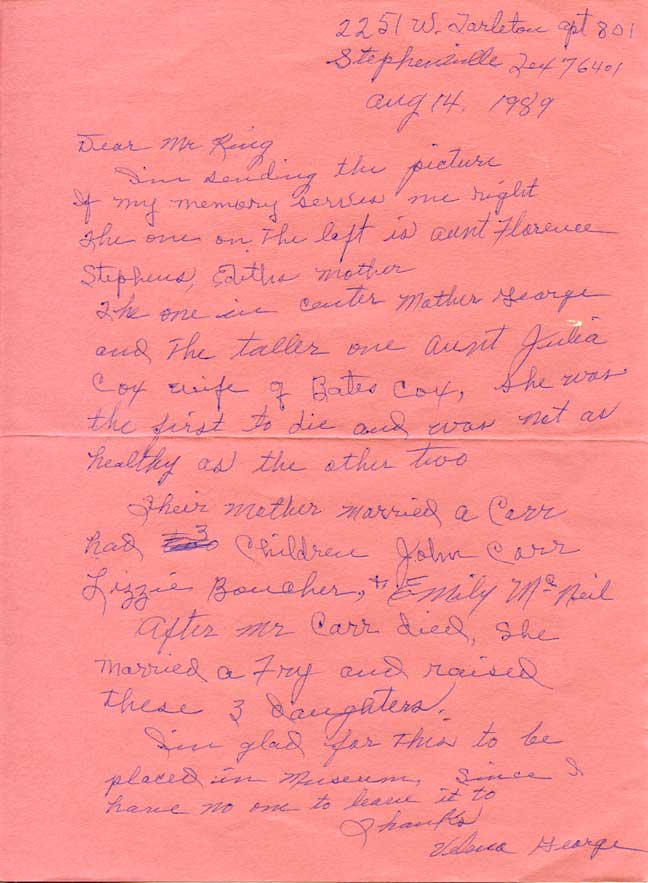 2251 W. Tarleton apt 801
Stephenville Tex 76401
Aug 14, 1989
Dear Mr King
I'm sending the picture
If my memory serves me right
The one on The left is aunt Florence
Stephens, Ediths Mother
The one in center Mother George
and The taller one aunt Julia
Cox wife of Bates Cox, She was
the first to die and was not as
healthy as the other two
Their Mother married a Carr
had 3 Children John Carr
Lizzie Boucher, & Emily McNeil
After Mr Carr died, She
Married a Fry and raised
these 3 daughters.
I'm glad for This to be
placed in Museum, Since I
have no one to leave it to
Thanks
George